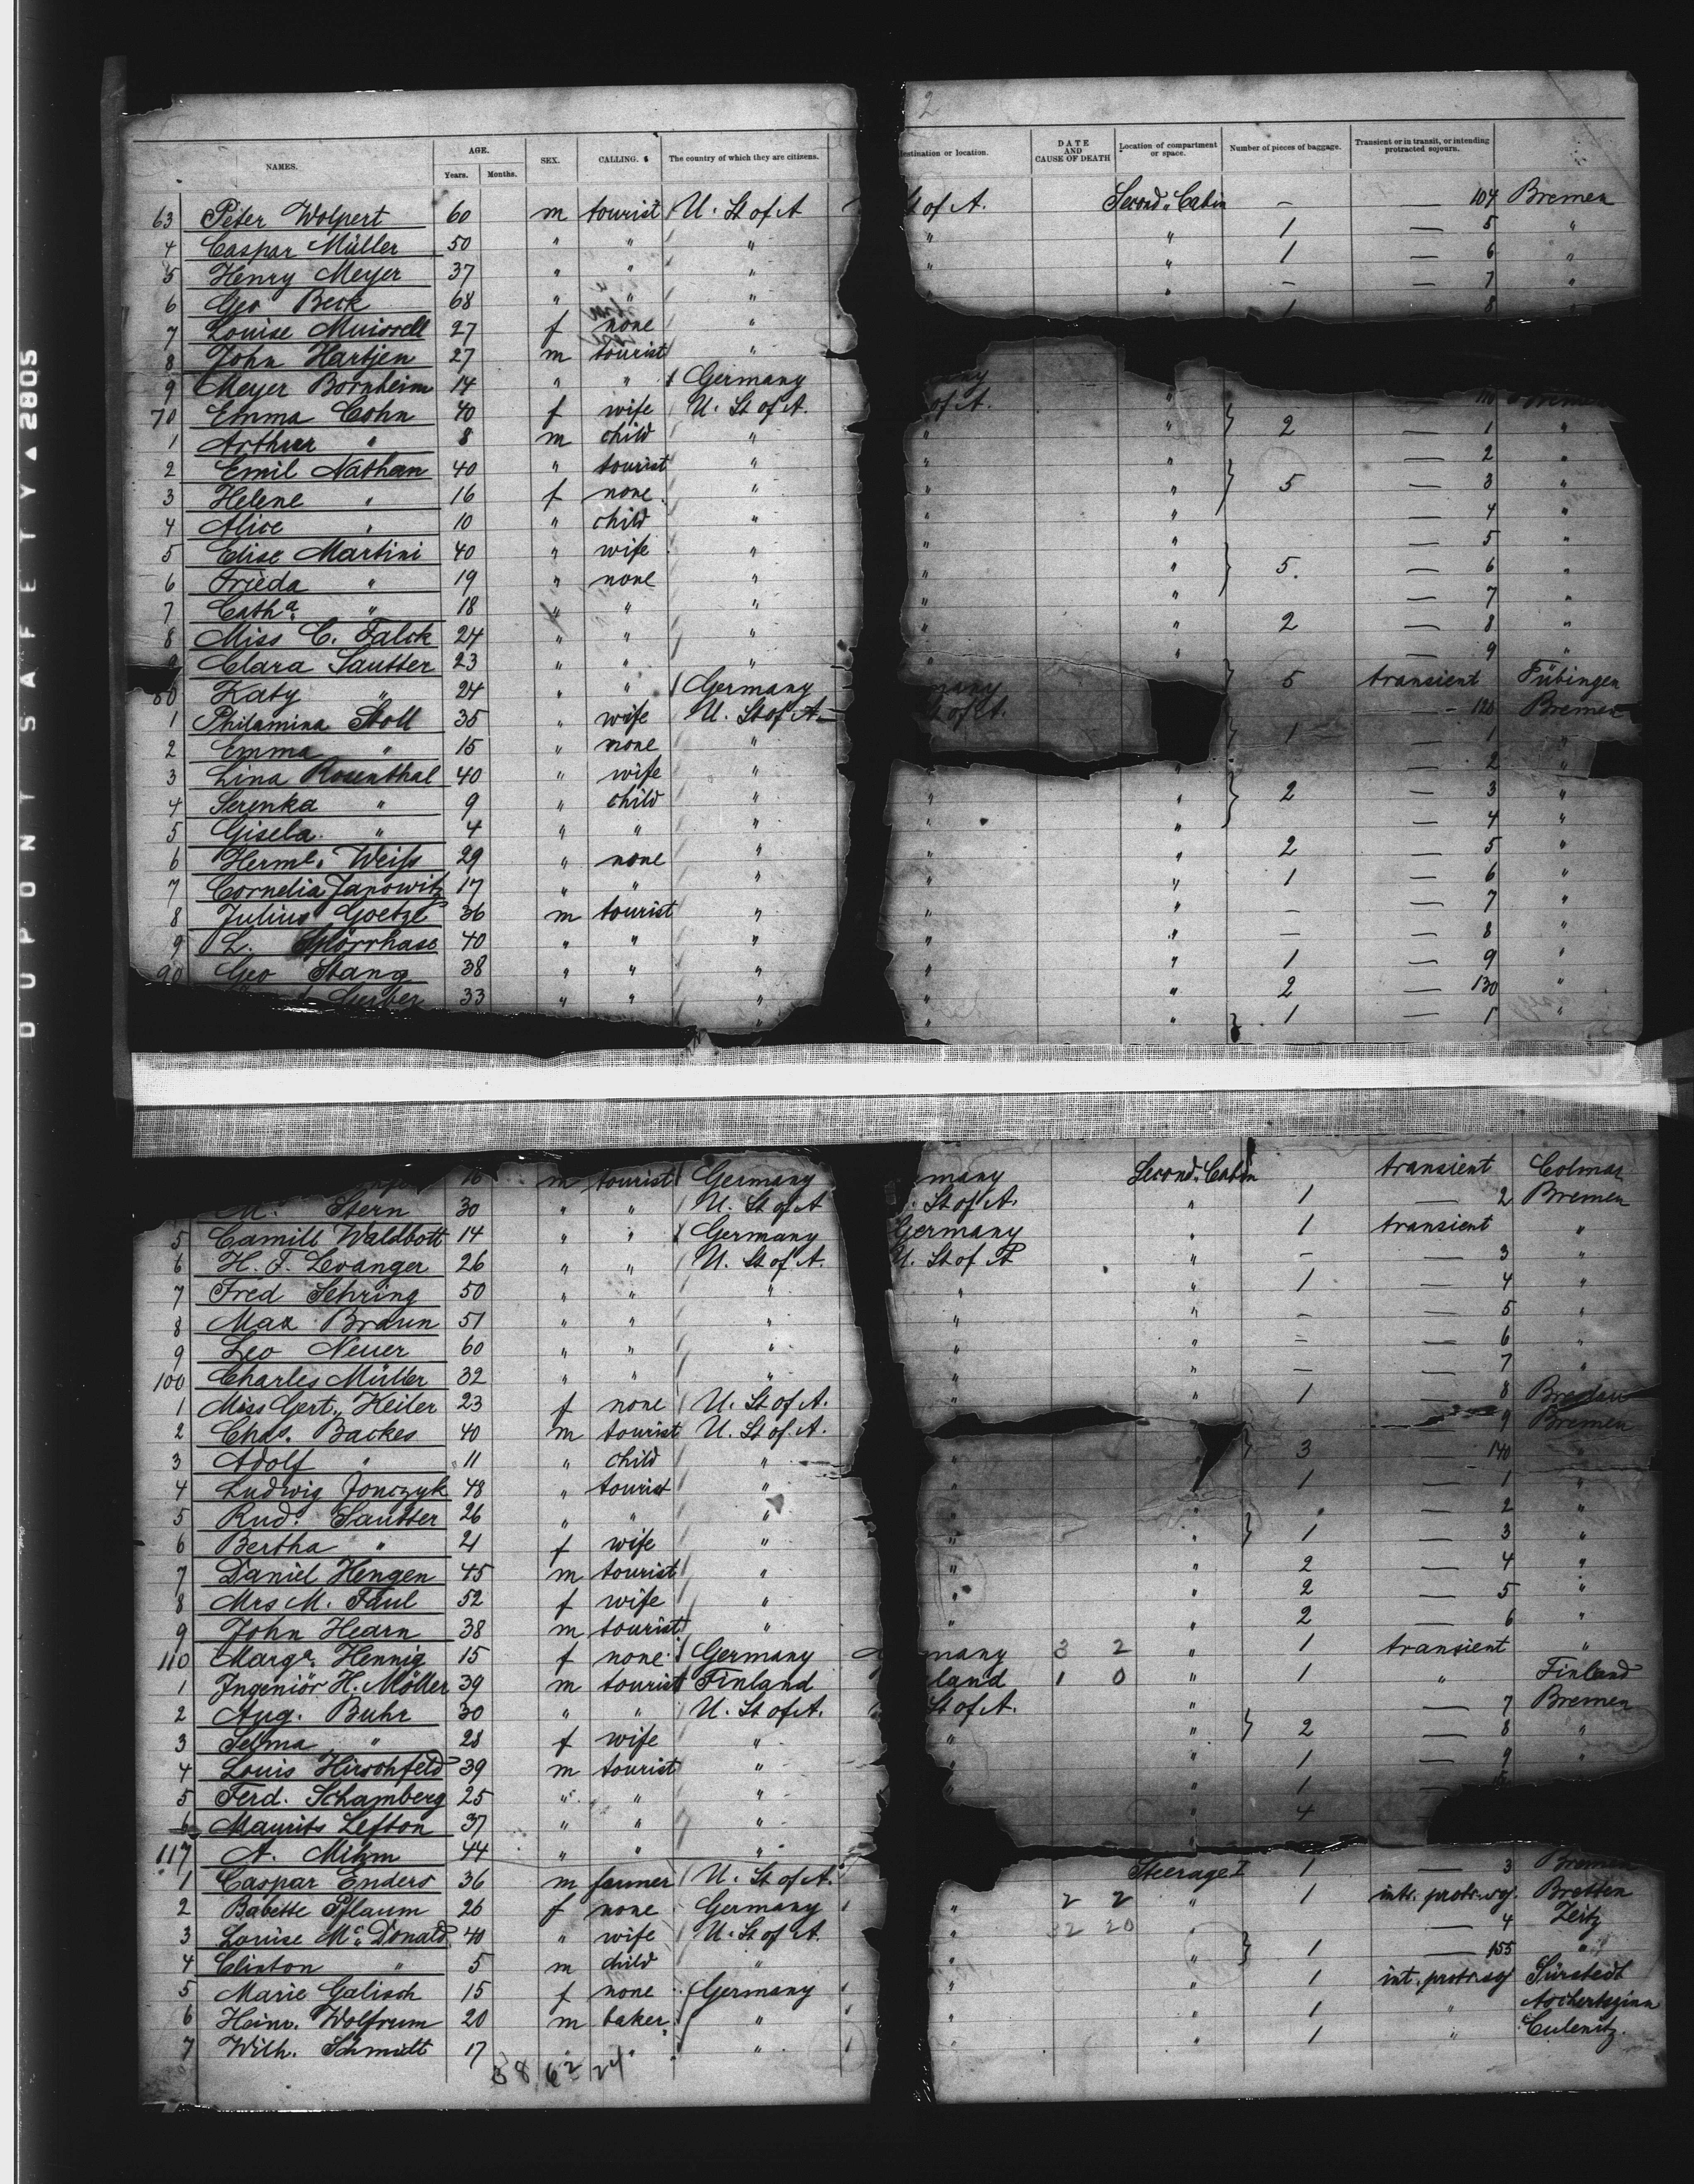 DUPONT SAFETY ▲ 2805
2
NAMES. AGE. Years. Months. SEX. CALLING. The country of which they are citizens. destination or location. DATE AND CAUSE OF DEATH Location of compartment or space. Number of pieces of baggage. Transient or in transit, or intending protracted sojourn.
63 Peter Wolpert 60 m tourist U. St of A St of A. Second Cabin – — 104 Bremen
4 Caspar Müller 50 " " " " " 1 — 5 "
5 Henry Meyer 37 " " " " " 1 — 6 "
6 Geo Beck 68 " " " " " – — 7 "
7 Louise 27 f none " 1 8
8 John Hartjen 27 m tourist "
9 Meyer Bornheim 14 " " Germany
70 Emma Cohn 40 f wife U. St of A. of A. "
1 Arthur " 8 m child " " " 2 — 1 "
2 Emil Nathan 40 " tourist " " " — 2 "
3 Helene " 16 f none " " " 5 — 3 "
4 Alice " 10 " child " " " — 4 "
5 Elise Martini 40 " wife " " " — 5 "
6 Frieda " 19 " none " " " 5. — 6 "
7 Catha " 18 " " " " " — 7 "
8 Miss C. Falck 24 " " " " " 2 — 8 "
9 Clara Sautter 23 " " " " " — 9 "
80 Katy " 24 " " Germany many 5 transient Tübingen
1 Philamina Stoll 35 " wife U. St of A. St of A. - 120 Bremen
2 Emma " 15 " none " 1 — 1 "
3 Lina Rosenthal 40 " wife " " — 2 "
4 Serenka " 9 " child " " " 2 — 3 "
5 Gisela " 4 " " " " " — 4 "
6 Hermle. Weiss 29 " none " " " 2 — 5 "
7 Cornelia Janowitz 17 " " " " " 1 — 6 "
8 Julius Goetze 36 m tourist " " " – — 7 "
9 L. 40 " " " " " – — 8 "
90 Geo Stang 38 " " " " " 1 — 9 "
Gerber 33 " " " " " 2 — 130 "
" " " 1 — 1 "
16 m tourist Germany many Second. Cabin transient Colmar
M. Stern 30 " " U. St of A St of A. " 1 — 2 Bremen
5 Camill Waldbott 14 " " Germany Germany " 1 transient "
6 H. F. Levanger 26 " " U. St of A. U. St of A " – — 3 "
7 Fred Sehring 50 " " " " " 1 — 4 "
8 Max Braun 51 " " " " " – — 5 "
9 Leo Neuer 60 " " " " " – — 6 "
100 Charles Müller 32 " " " " " – — 7 "
1 Miss Gert. Keiler 23 f none U. St of A. " " 1 — 8 Breslau
2 Chas. Backes 40 m tourist U. St of A. 9 Bremen
3 Adolf " 11 " child " " 3 140 "
4 Ludwig Jonczyk 48 " tourist " " 1 — 1 "
5 Rud. Sautter 26 " " " " " — 2 "
6 Bertha " 21 f wife " " " 1 — 3 "
7 Daniel Hengen 45 m tourist " " " 2 — 4 "
8 Mrs M. Faul 52 f wife " " " 2 — 5 "
9 John Hearn 38 m tourist " " " 2 — 6 "
110 Marga. Hennig 15 f none Germany many 3 2 " 1 transient "
1 Ingeniör H. Möller 39 m tourist Finland land 1 0 " 1 " Finland
2 Aug. Buhr 30 " " U. St of A. St of A. " — 7 Bremen
3 Selma " 28 f wife " " " 2 — 8 "
4 Louis Hirschfeld 39 m tourist " " " 1 — 9 "
5 Ferd. Schamberg 25 " " " " " 1 —
6 Maurits Lefton 37 " " " " 4
117 A. Mihm 44 " " " "
1 Caspar Enders 36 m farmer U. St of A. Steerage I 1 — 3 Bremen
2 Babette Pflaum 26 f none Germany " 2 2 " 1 int. protr. soj. Bretten
3 Louise Mc Donald 40 " wife U. St of A. " 32 20 " — 4 Zeitz
4 Clinton " 5 m child " " " 1 — 155 "
5 Marie Galisch 15 f none Germany " " 1 int. protr. soj
6 Heinr. Wolfrum 20 m baker " " " 1 "
7 Wilh. Schmidt 17 " " " " " 1 " Culmitz.
38 62 24